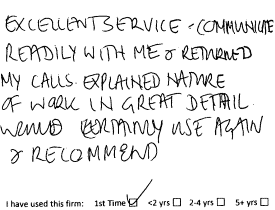 EXCELLENT SERVICE - COMMUNICATE
READILY WITH ME & RETURNED
MY CALLS. EXPLAINED NATURE
OF WORK IN GREAT DETAIL.
WOULD CERTAINLY USE AGAIN
& RECOMMEND
I have used this firm: 1st Time ☑ <2 yrs ☐ 2-4 yrs ☐ 5+ yrs ☐